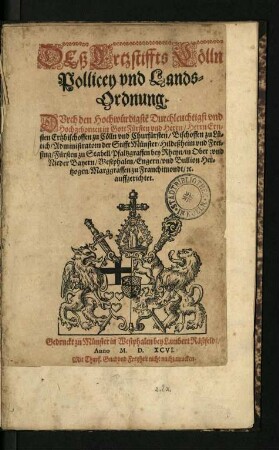 DEß Ertzstiffts Cölln
Pollicey vnd Lands-
Ordnung.
DVrch den Hochwürdigste Durchleuchtigst vnd
Hochgebornen in Gott Fürsten vnd Herrn / Herrn Ern-
sten Ertzbischoffen zu Cölln vnd Churfürsten / Bischoffen zu Lü-
tich / Administratorn der Stifft Münster / Hildeßheim vnd Frei-
sing / Fürsten zu Stabell / Pfaltzgraffen bey Rheyn / in Ober vnd
Nieder Bayern / Westphalen / Engern / vnd Bullion Her-
tzogen / Marggraffen zu Franchimondt / ꝛc.
auffgerichtet.
Gedruckt zu Münster in Westphalen bey Lambert Raßfeldt /
Anno M. D. XCVI.
Mit Churf. Gnad vnd Freyheit nicht nachzutrucken.